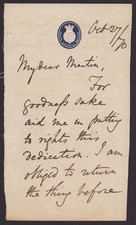 Oct 27/70
My dear Martin,
For
goodness sake
aid me in putting
to rights this
dedication. I am
obliged to return
the thing before